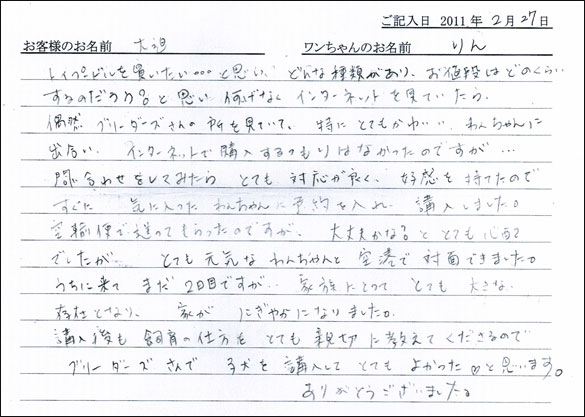 ご記入日 2011年2月27日
お客様のお名前 ワンちゃんのお名前 りん
トイプードルを買いたい。。。と思い、どんな種類があり、お値段はどのくらい
するのだろう?と思い何げなくインターネットを見ていたら、
偶然ブリーダーズさんの所を見ていて、特にとてもかわいいわんちゃんに
出合い、インターネットで購入するつもりはなかったのですが…
問い合わせをしてみたらとても対応が良く、好感を持てたので
すぐに気に入ったわんちゃんに予約を入れ、講入しました。
空輸便で送ってもらったのですが、大丈夫かな?ととても心配
でしたが とても元気なわんちゃんと空港で対面できました。
うちに来てまだ2日目ですが、家族にとってとても大きな、
存在となり、家がにぎやかになりました。
講入後も飼育の仕方をとても親切に教えてくださるので
ブリーダーズさんで子犬を講入してとてもよかった♡と思います。
ありがとうございました。